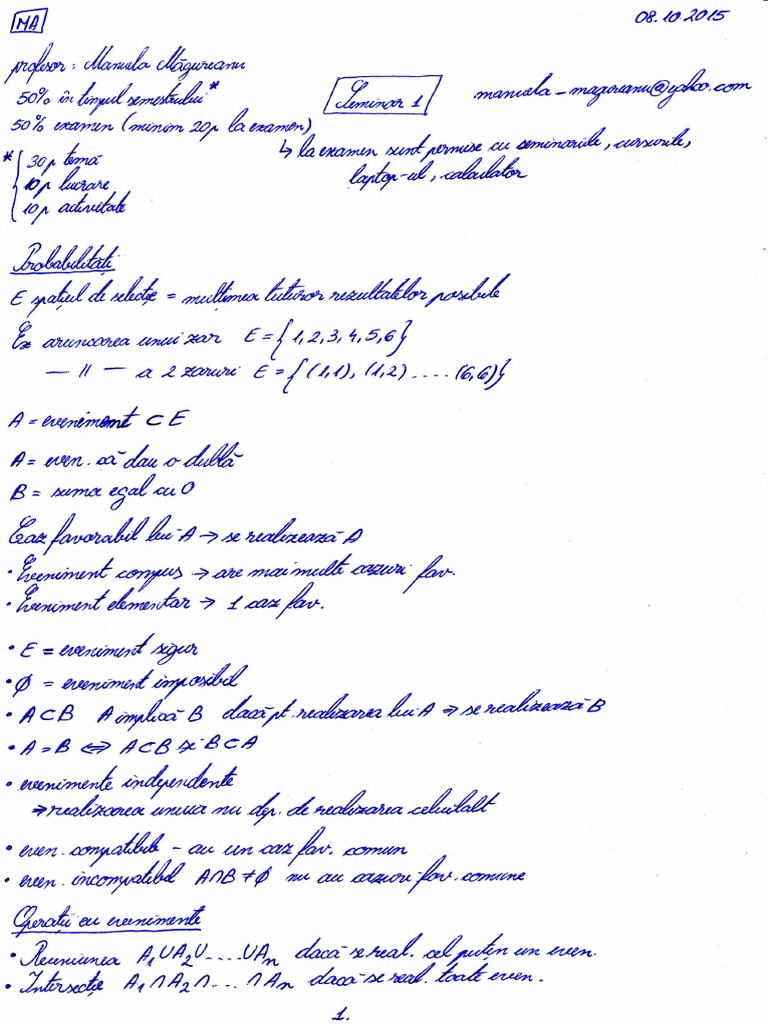 MA
08.10.2015
profesor: Manuela Măgureanu
50% în timpul semestrului *
Seminar 1
manuela_magureanu@yahoo.com
50% examen (minim 20p la examen)
↳ la examen sunt permise cu seminariile, cursurile,
laptop-ul, calculator
* { 30p temă
10p lucrare
10p activitate
Probabilități
E spațiul de selecție = mulțimea tuturor rezultatelor posibile
Ex aruncarea unui zar E = {1,2,3,4,5,6}
— 11 — a 2 zaruri E = {(1,1), (1,2) ..... (6,6)}
A = eveniment ⊂ E
A = even. să dau o dublă
B = suma egal cu 0
Caz favorabil lui A → se realizează A
• Eveniment compus → are mai multe cazuri fav.
• Eveniment elementar → 1 caz fav.
• E = eveniment sigur
• ∅ = eveniment imposibil
• A ⊂ B A implică B dacă pt. realizarea lui A ⇒ se realizează B
• A = B ⇔ A ⊂ B și B ⊂ A
• evenimente independente
⇒ realizarea unuia nu dep. de realizarea celuilalt
• even. compatibile - au un caz fav. comun
• even. incompatibil A∩B ≠ ∅ nu au cazuri fav. comune
Operații cu evenimente
• Reuniunea A₁∪A₂∪.....∪Aₙ dacă se real. cel puțin un even.
• Intersecție A₁∩A₂∩....∩Aₙ dacă se real. toate even.
1.